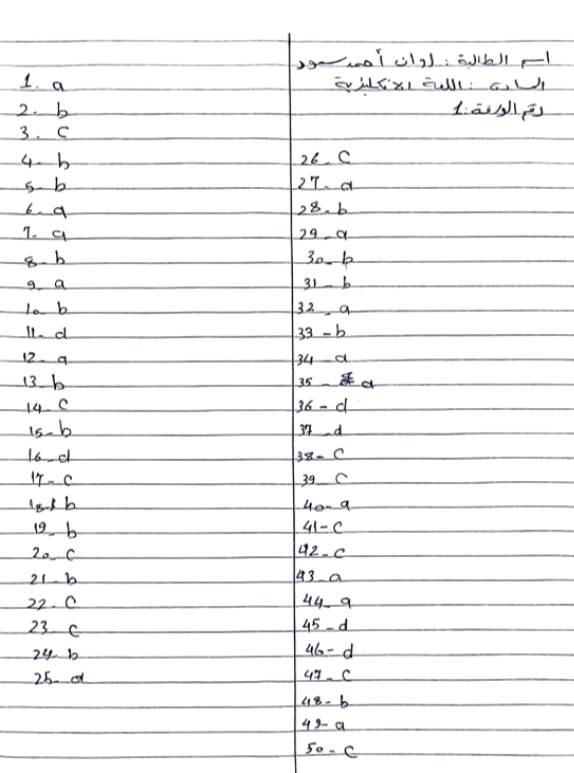 اسم الطالبة : روان أحمد سعود
المادة : اللغة الانكليزية
رقم الورقة : 1
1. a
2. b
3. c
4- b
5- b
6. a
7. a
8- b
9- a
10- b
11- d
12- a
13- b
14- c
15- b
16- d
17- c
18- b
19- b
20- c
21- b
22- c
23- c
24- b
25- d
26- c
27- d
28- b
29- a
30- b
31- b
32- a
33- b
34- d
35- d
36- d
37- d
38- c
39- c
40- a
41- c
42- c
43- a
44- a
45- d
46- d
47- c
48- b
49- a
50- c